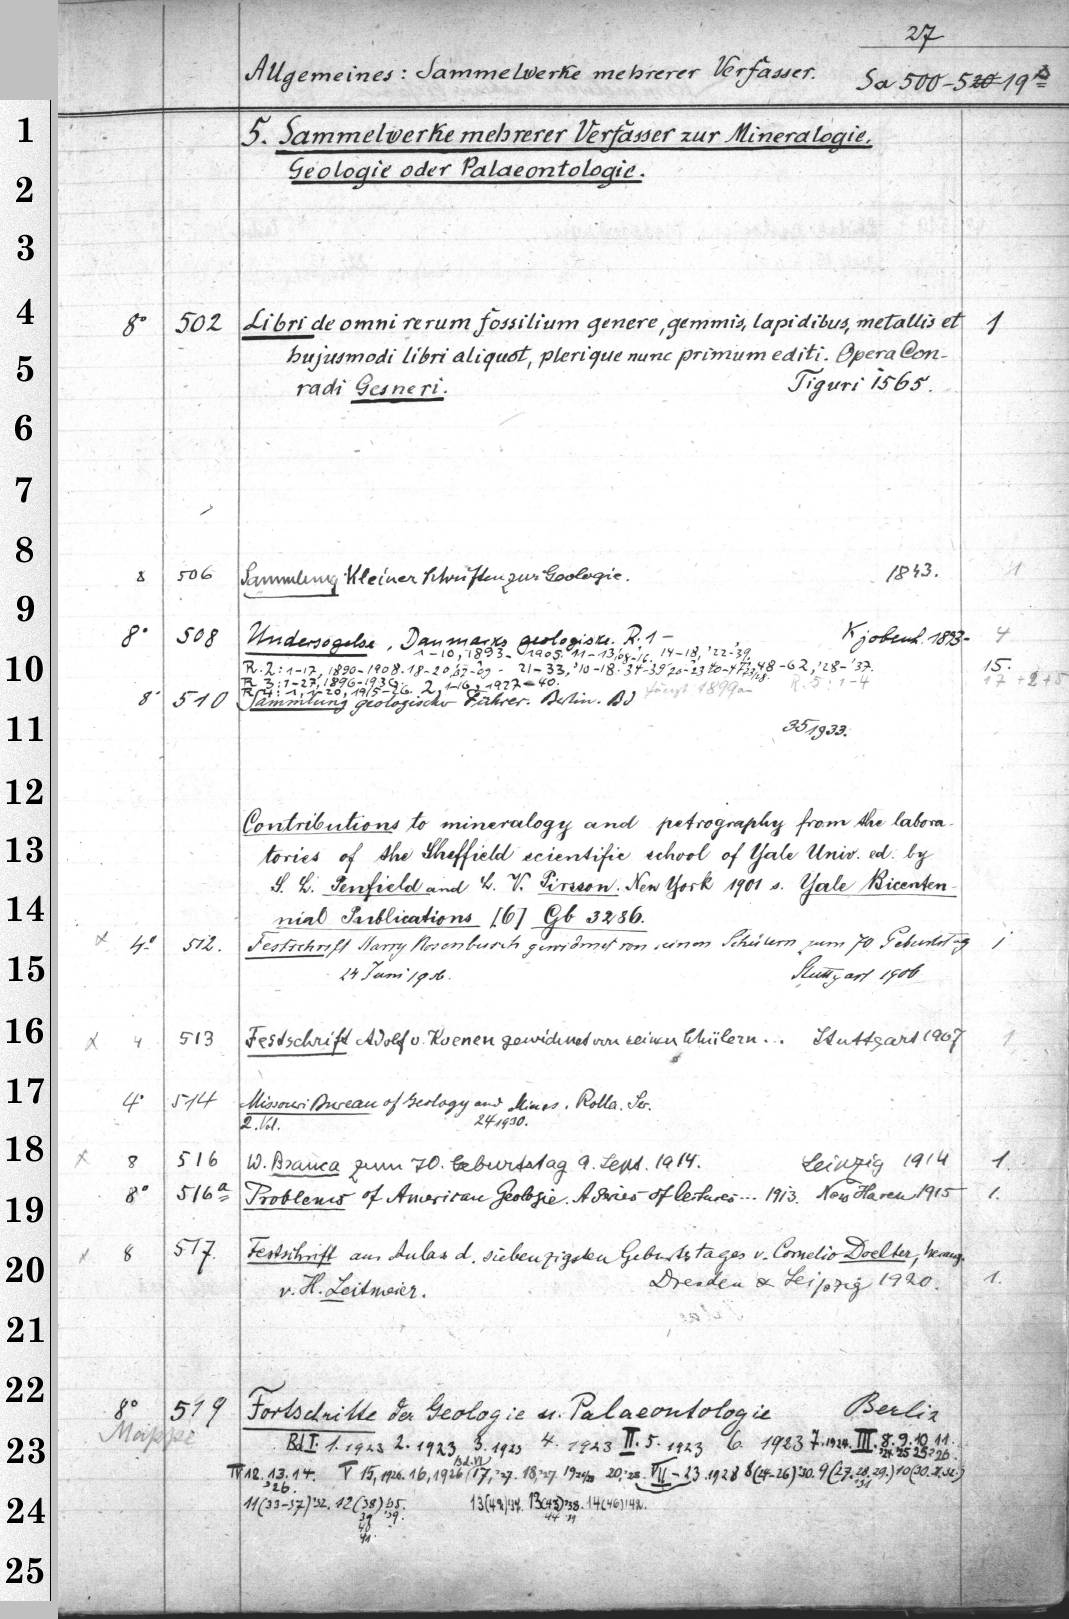 27
Allgemeines: Sammelwerke mehrerer Verfasser. Sa 500-520 19
1 5. Sammelwerke mehrerer Verfasser zur Mineralogie,
2 Geologie oder Palaeontologie.
3
4 8° 502 Libri de omni rerum fossilium genere, gemmis, lapidibus, metallis et 1
5 hujusmodi libri aliquot, plerique nunc primum editi. Opera Con-
radi Gesneri. Tiguri 1565.
6
7
8
8 506 Sammlung Kleiner Schriften zur Geologie. 1843. 1
9
8° 508 Undersogelse, Danmarks geologiske. R. 1- Kjobenh. 1893- 4
1-10, 1893-1905. 11-13, 14-18, '22-39.
10 R. 2: 1-17, 1890-1908. 18-20, 21-33, '10-18. 48-62, '28-'37. 15.
R 3: 1-27, 1896-1936. 17 + 2 + 5
R. 4: 1, 1-20, 1915-26. 2, 1-16, 1927-40. R. 5: 1-4
8° 510 Sammlung geologischer Führer. Berlin. Bd
11 35 1933.
12
Contributions to mineralogy and petrography from the labora-
13 tories of the Sheffield scientific school of Yale Univ. ed. by
S. L. Penfield and L. V. Pirsson. New York 1901 s. Yale Bicenten-
14 nial Publications [6] Gb 3286.
x 4° 512. Festschrift Harry Rosenbusch gewidmet von seinen Schülern zum 70 Geburtstag 1
15 24 Juni 1906. Stuttgart 1906
16 x 4 513 Festschrift Adolf v. Koenen gewidmet von seinen Schülern... Stuttgart 1907 1
17 4° 514 Missouri Bureau of Geology and Mines. Rolla. Ser.
2. Vol. 24 1930.
18 x 8 516 W. Branca zum 70. Geburtstag 9. Sept. 1914. Leipzig 1914 1.
19 8° 516a Problems of American Geologie. A Series of lectures... 1913. New Haven 1915 1.
20 x 8 517. Festschrift aus Anlas d. siebenzigsten Geburtstages v. Cornelio Doelter, herausg.
v. H. Leitmeier. Dresden & Leipzig 1920. 1.
21
22
8° 519 Fortschritte der Geologie u. Palaeontologie Berlin
Mappe
23 Bd I. 1. 1923 2. 1923 3. 1923 4. 1923 II. 5. 1923 6. 1923 7. 1924. III. 8. 9. 10. 11.
IV 12. 13. 14. V 15, 1926. 16, 1926 (17, '27. 18, '27. 20, '28. VII - 23. 1928
24 11(33-37) '32. 12(38) 13(42) 14(46)
25